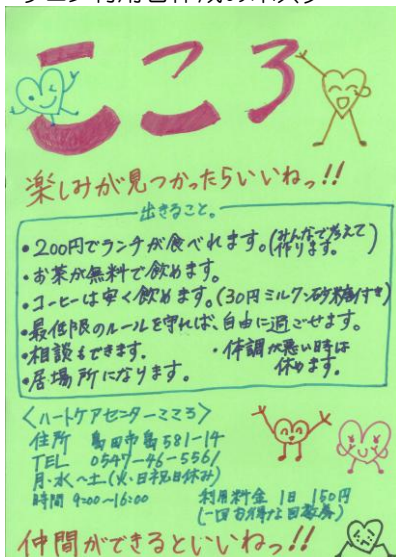 こころ
楽しみが見つかったらいいねっ!!
出きること。
・200円でランチが食べれます。(みんなで考えて作ります。)
・お茶が無料で飲めます。
・コーヒーは安く飲めます。(30円ミルク、砂糖付き)
・最低限のルールを守れば、自由に過ごせます。
・相談もできます。 ・体調が悪い時は休めます。
・居場所になります。
〈ハートケアセンターこころ〉
住所 島田市島581-14
TEL 0547-46-5561
月・水〜土(火・日祝日休み)
時間 9:00〜16:00 利用料金 1日 150円
(一回お得な回数券)
仲間ができるといいねっ!!